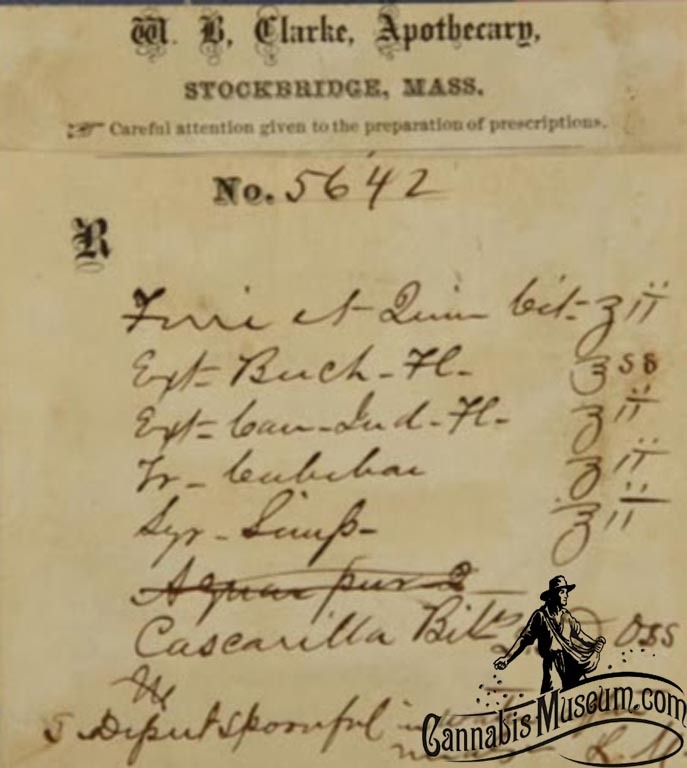 W. B. Clarke, Apothecary,
STOCKBRIDGE, MASS.
Careful attention given to the preparation of prescriptions.
No. 5642
R
Ferri et Quin Cit- ʒii
Ext- Buch- Fl- ʒss
Ext- Can- Ind- Fl- ʒii
Tr- Cubebae ʒii
Syr- Simp- ʒii
Aqua pura
Cascarilla Bit Oss
M
S Desertspoonful
CannabisMuseum.com